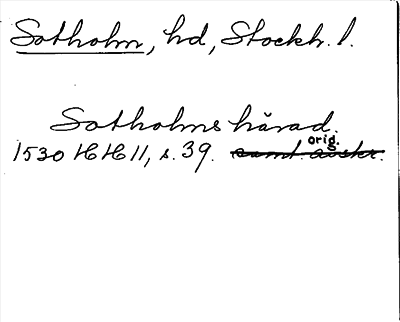 Sotholm, hd, Stockh. l.
Sotholms härad.
orig.
1530 HH 11, s. 39. samt. avskr.